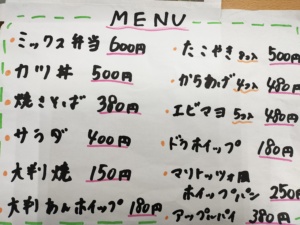 MENU
ミックス弁当 600円
カツ丼 500円
焼きそば 380円
サラダ 400円
大判焼 150円
大判あんホイップ 180円
たこやき 8コ入 500円
からあげ 4コ入 480円
エビマヨ 5コ入 480円
ドラホイップ 180円
マリトッツォ風
ホイップパン 250円
アップルパイ 380円